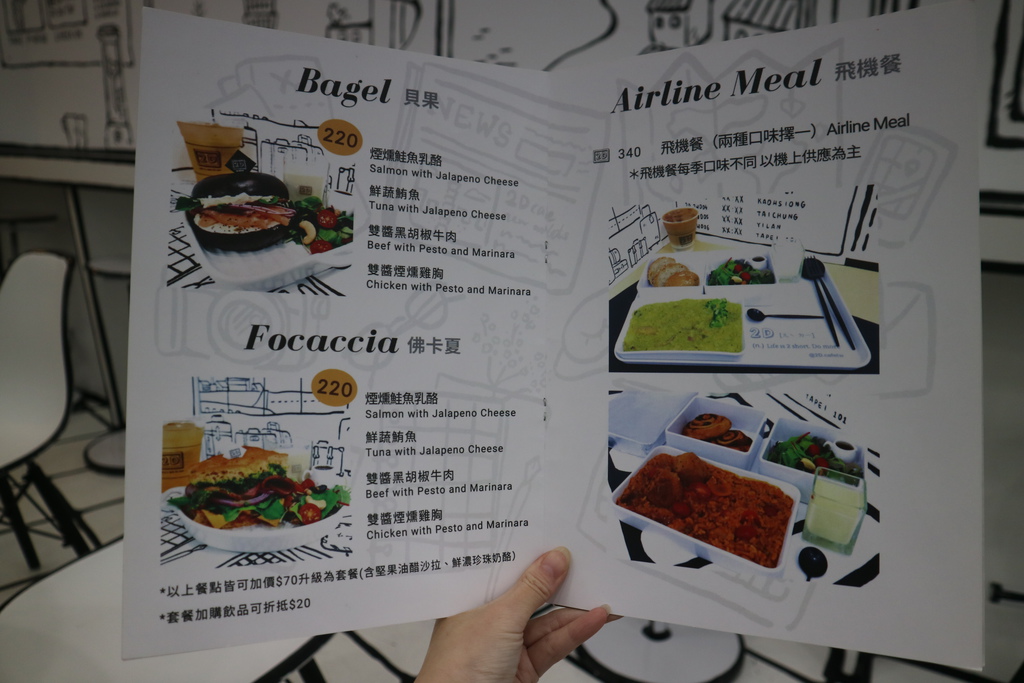 Bagel 貝果
220
煙燻鮭魚乳酪
Salmon with Jalapeno Cheese
鮮蔬鮪魚
Tuna with Jalapeno Cheese
雙醬黑胡椒牛肉
Beef with Pesto and Marinara
雙醬煙燻雞胸
Chicken with Pesto and Marinara
Focaccia 佛卡夏
220
煙燻鮭魚乳酪
Salmon with Jalapeno Cheese
鮮蔬鮪魚
Tuna with Jalapeno Cheese
雙醬黑胡椒牛肉
Beef with Pesto and Marinara
雙醬煙燻雞胸
Chicken with Pesto and Marinara
*以上餐點皆可加價$70升級為套餐(含堅果油醋沙拉、鮮濃珍珠奶酪)
*套餐加購飲品可折抵$20
NEWS
Airline Meal 飛機餐
340 飛機餐（兩種口味擇一）Airline Meal
＊飛機餐每季口味不同 以機上供應為主
XX:XX KAOHSIONG
XX:XX TAICHUNG
XX:XX YILAN
XX:XX TAPEI
2D
TAPEI 101